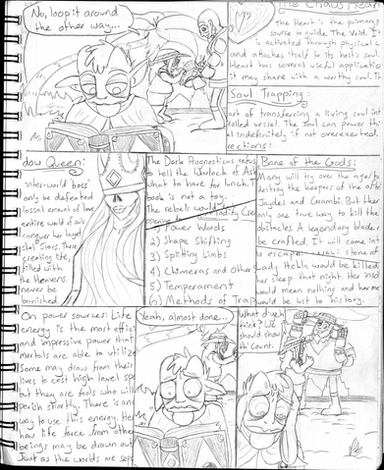 No, loop it around
the other way...
The Chaos Heart
the Heart is the primary
source to guide. The Void. It
is activated through physical c
and attaches itself to its host's soul.
Heart has several useful application
it may share with a worthy soul. It
Soul Trapping:
art of transferring a living soul int
trolled vessel. The soul can power thi
al indefinitely if not overexerted.
rections:
dow Queen:
interworld boss
only be defeated
lossal amount of love
entire world of souls
conquer her legacy
Star Stones. These
creating life,
filled with
the Heavens.
never be
banished.
The Dark Prognosticus refuses
to tell the Warlock of Ash
what to have for lunch. T
book is not a toy.
The rebels would
Power Words
2) Shape Shifting
3) Splitting Limbs
4) Chimeras and Other
5) Temperament
6) Methods of Trap
Bane of the Gods:
Many will try over the ages to
destroy the keepers of the afte
Jaydes and Grambi. But ther
only are true way to kill the
obstacles. A legendary blade
be crafted. It will come int
to escape
Lady Hellh would be killed
her sleep that night. Her
would mean nothing and her
would be lost to history.
On power sources: Life
energy is the most effici
and impressive power that
mortals are able to utilize
Some may draw from their
lives to cost high level spe
but they are fools who will
perish shortly. There is ano
way to use this energy. He
how life force from other
beings may be drawn out
Just as the worlds are sep
Yeah, almost done...
What d'yeh
think? We
should show
th' count.